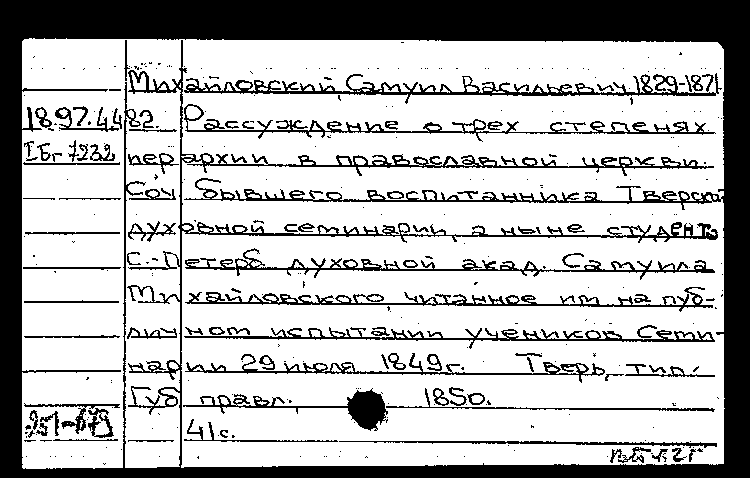 Михайловский, Самуил Васильевич, 1829-1871
1897.4482 Рассуждение о трех степенях
IБг 7232 иерархии в православной церкви.
Соч. бывшего воспитанника Тверской
духовной семинарии, а ныне студента
С.-Петерб. духовной акад. Самуила
Михайловского, читанное им на пуб-
личном испытании учеников Семи-
нарии 29 июля 1849г. Тверь, тип.
Губ. правл., 1850.
41с.